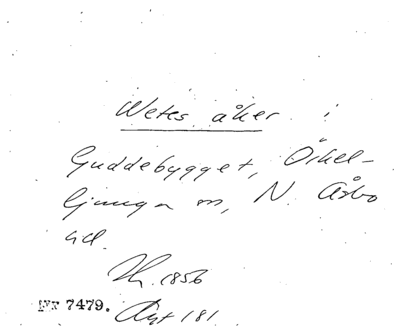 Wetes åker i
Guddebygget, Örkel-
ljunga sn, N. Åsbo
hd.
1856
7479. Avt 181